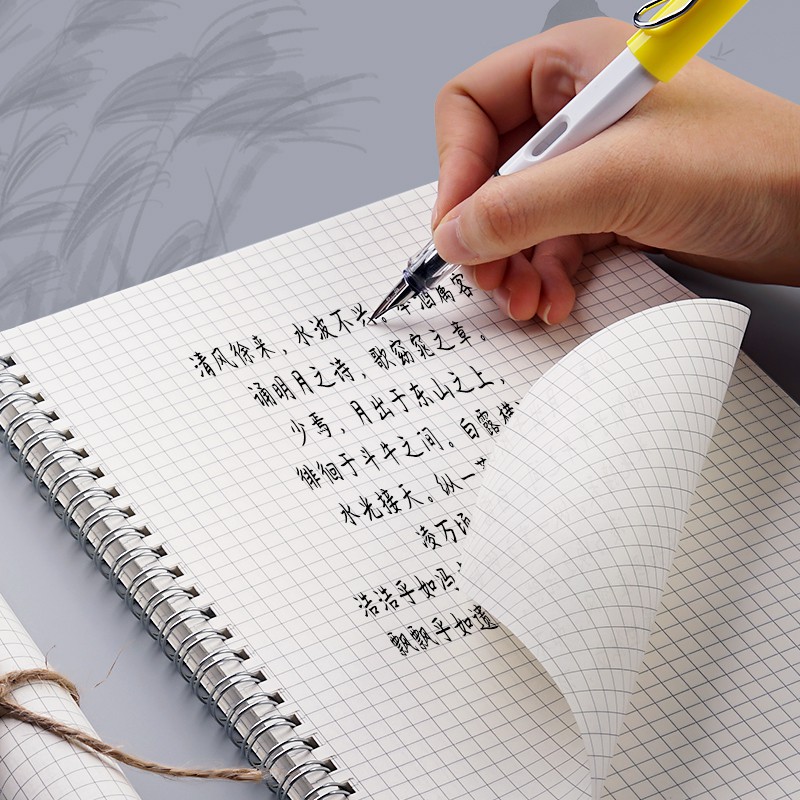 清风徐来，水波不兴。举酒属客
诵明月之诗，歌窈窕之章。
少焉，月出于东山之上，
徘徊于斗牛之间。白露横
水光接天。纵一
凌万顷
浩浩乎如冯
飘飘乎如遗